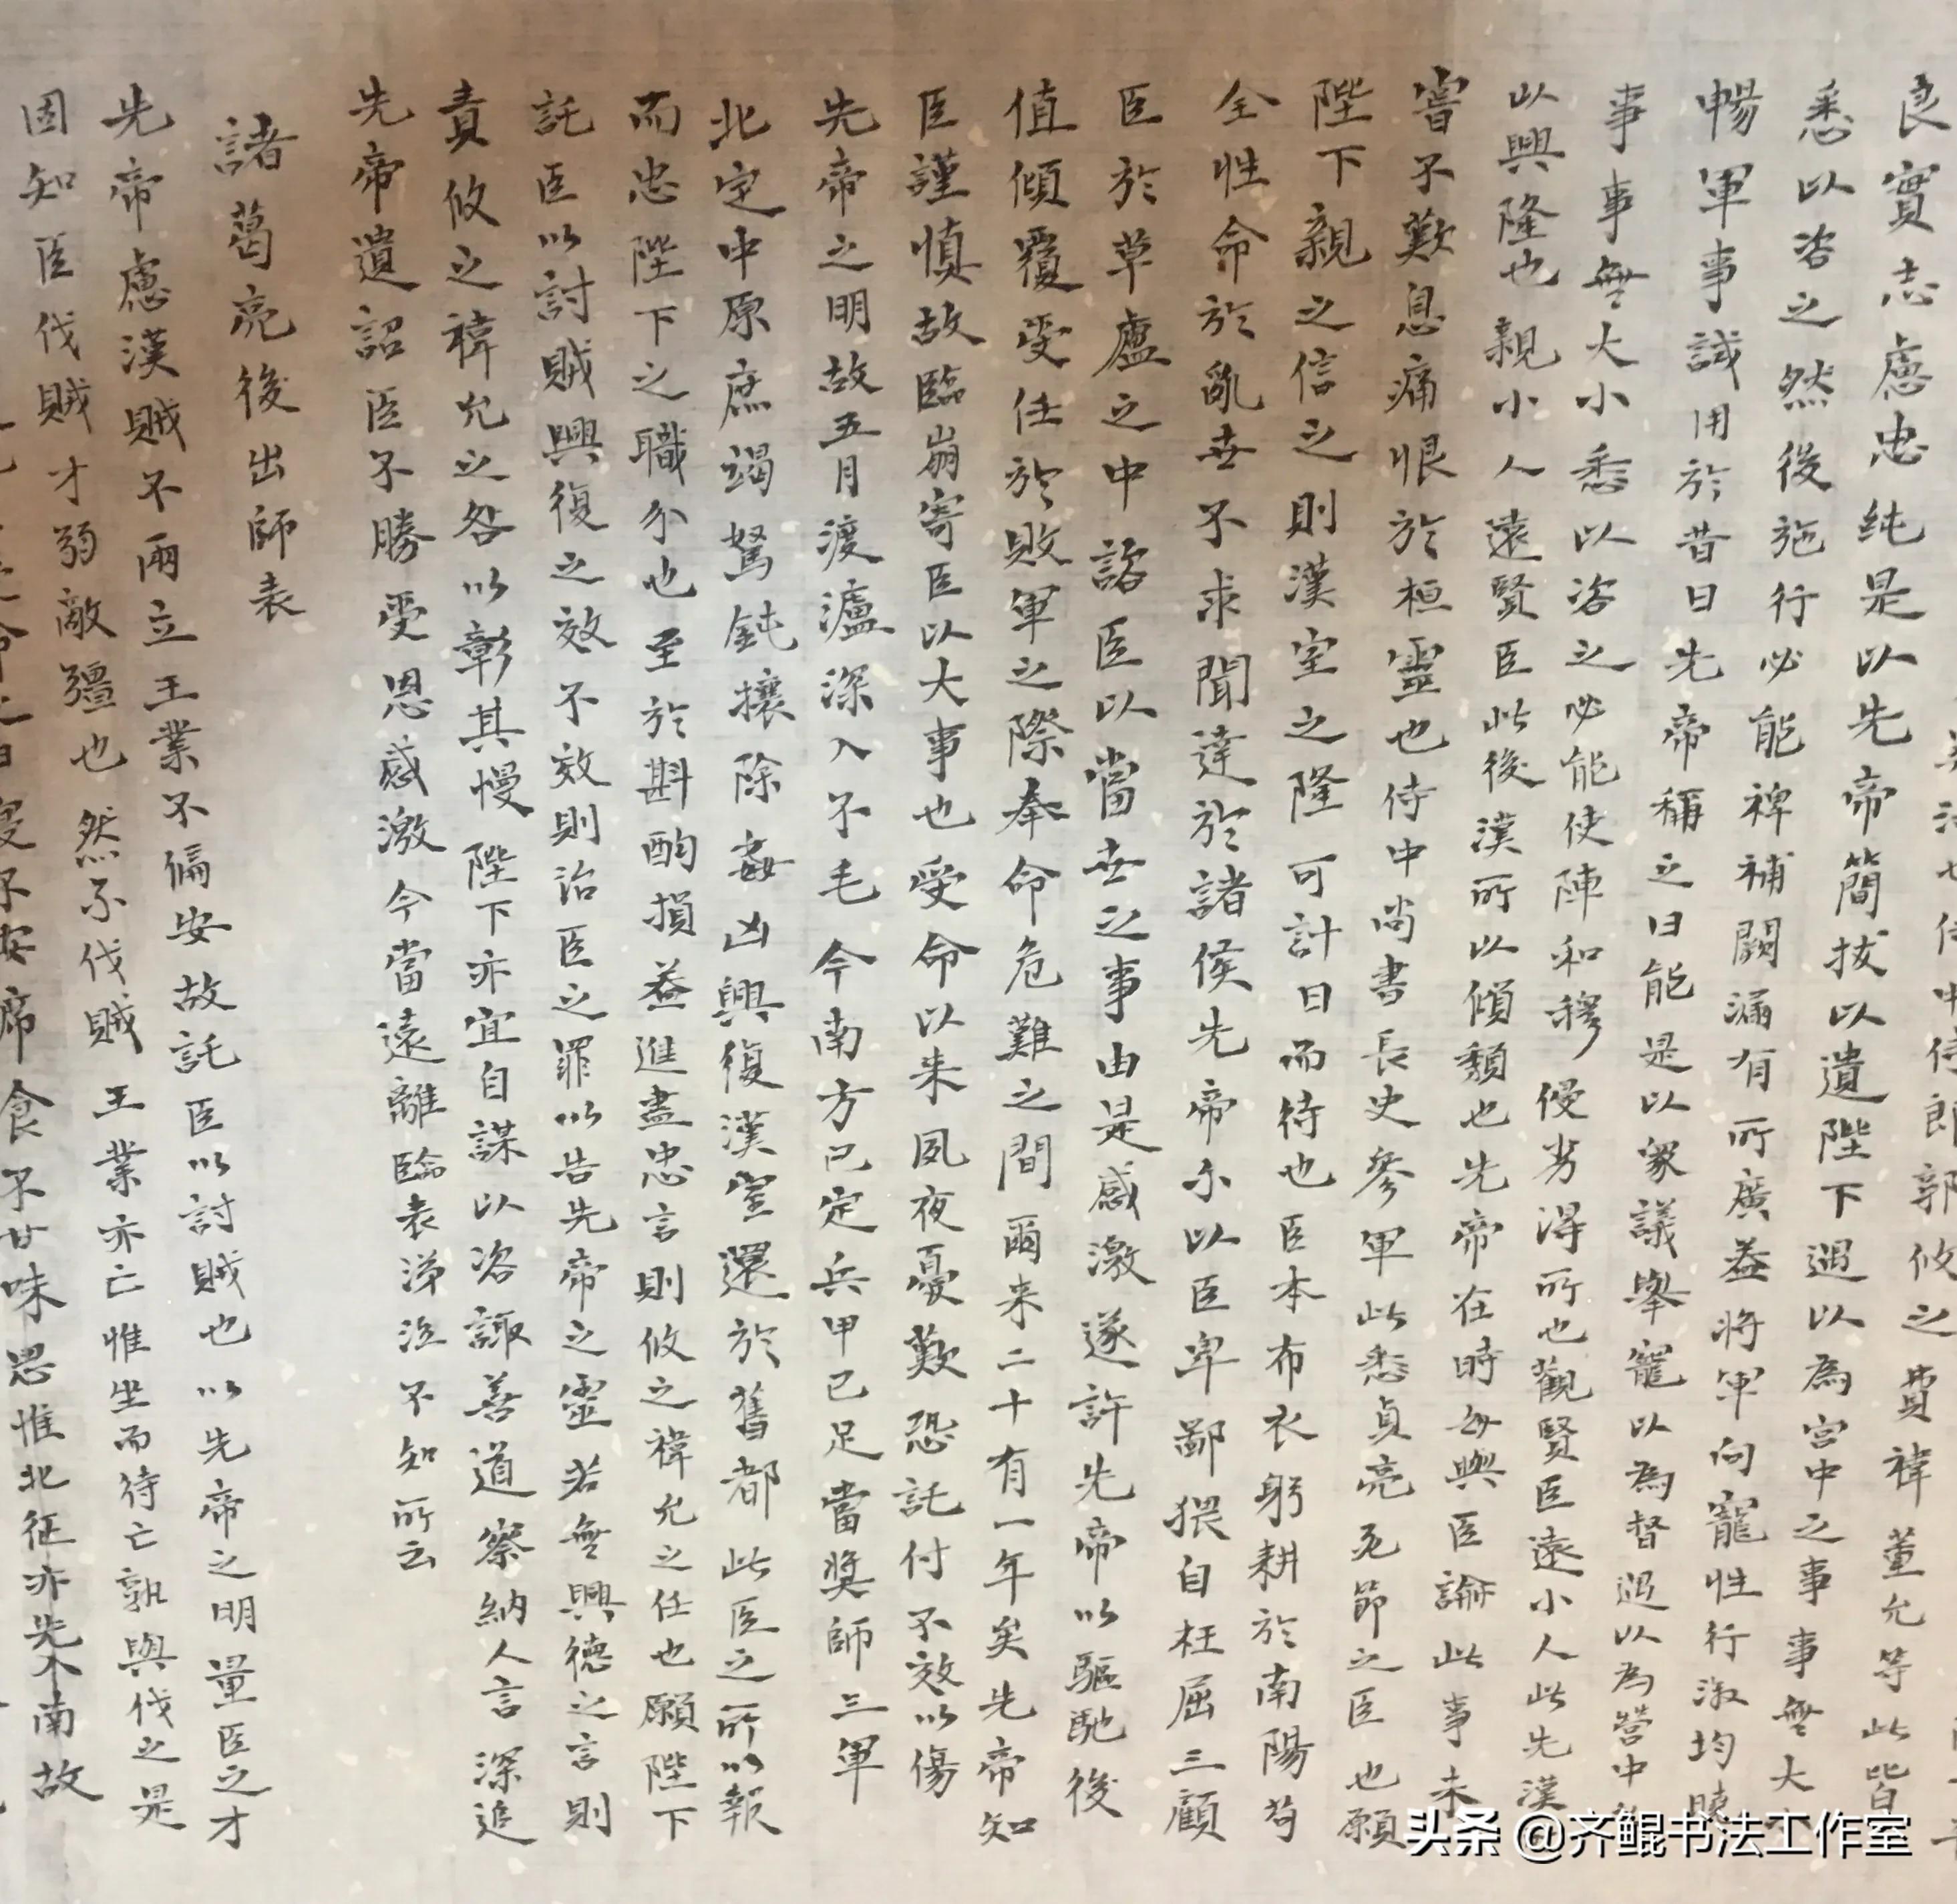 也侍中侍郎郭攸之費禕董允等此皆
良實志慮忠純是以先帝簡拔以遺陛下過以為宮中之事事無大
悉以咨之然後施行必能裨補闕漏有所廣益將軍向寵性行淑均
暢軍事試用於昔日先帝稱之曰能是以衆議舉寵以為督過以為營中
事事無大小悉以咨之必能使陣和穆優劣得所也觀賢臣遠小人此先漢
以興隆也親小人遠賢臣此後漢所以傾頹也先帝在時每與臣論此事未
嘗不歎息痛恨於桓靈也侍中尚書長史參軍此悉貞亮死節之臣也願
陛下親之信之則漢室之隆可計日而待也臣本布衣躬耕於南陽苟
全性命於亂世不求聞達於諸侯先帝不以臣卑鄙猥自枉屈三顧
臣於草廬之中諮臣以當世之事由是感激遂許先帝以驅馳後
值傾覆受任於敗軍之際奉命危難之間爾来二十有一年矣先帝知
臣謹慎故臨崩寄臣以大事也受命以来夙夜憂歎恐託付不效以傷
先帝之明故五月渡瀘深入不毛今南方已定兵甲已足當獎師三軍
北定中原庶竭駑鈍攘除姦凶興復漢室還於舊都此臣之所以報
而忠陛下之職分也至於斟酌損益進盡忠言則攸之禕允之任也願陛下
託臣以討賊興復之效不效則治臣之罪以告先帝之靈若無興德之言則
責攸之禕允之咎以彰其慢陛下亦宜自謀以咨諏善道察納人言深追
先帝遺詔臣不勝受恩感激今當遠離臨表涕泣不知所云
諸葛亮後出師表
先帝慮漢賊不兩立王業不偏安故託臣以討賊也以先帝之明量臣之才
固知臣伐賊才弱敵彊也然不伐賊王業亦亡惟坐而待亡孰與伐之是
寢不安席食不甘味思惟北征亦先入南故
头条 @齐鲲书法工作室